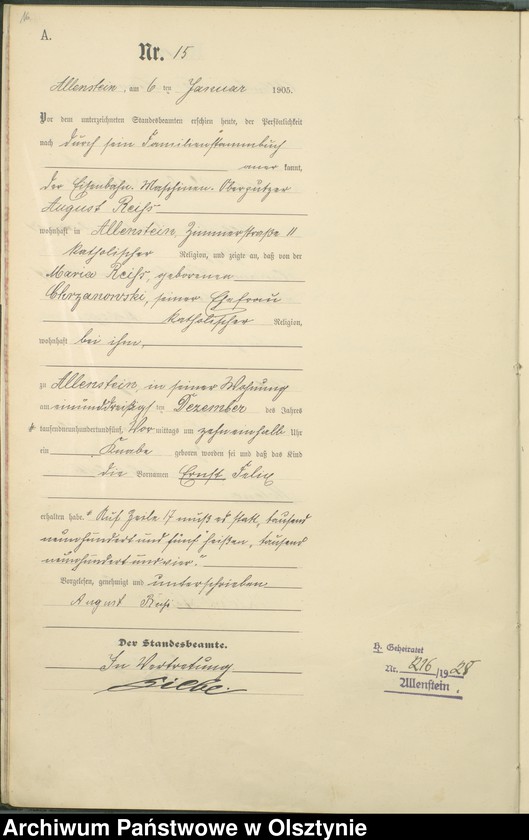 A.
Nr. 15
Allenstein, am 6 ten Januar 1905.
Vor dem unterzeichneten Standesbeamten erschien heute, der Persönlichkeit
nach durch sein Familienstammbuch
aner kannt,
der Eisenbahn-Maschinen-Oberputzer
August Reihs
wohnhaft in Allenstein, Zimmerstraße 11
katholischer Religion, und zeigte an, daß von der
Maria Reihs, geborenen
Chrzanowski, seiner Ehefrau
katholischer Religion,
wohnhaft bei ihm,
zu Allenstein, in seiner Wohnung
am einunddreißigst ten Dezember des Jahres
tausendneunhundertundfünf, Vor mittags um zehneinhalb Uhr
ein Knabe geboren worden sei und daß das Kind
die Vornamen Ernst Felix
erhalten habe. Auf Zeile 17 muß es statt, "tausend
neunhundert und fünf" heißen, "tausend
neunhundert und vier".
Vorgelesen, genehmigt und unterschrieben
August Reihs
Der Standesbeamte.
In Vertretung
Geheiratet
Nr. 1216/1928
Allenstein.
Archiwum Państwowe w Olsztynie